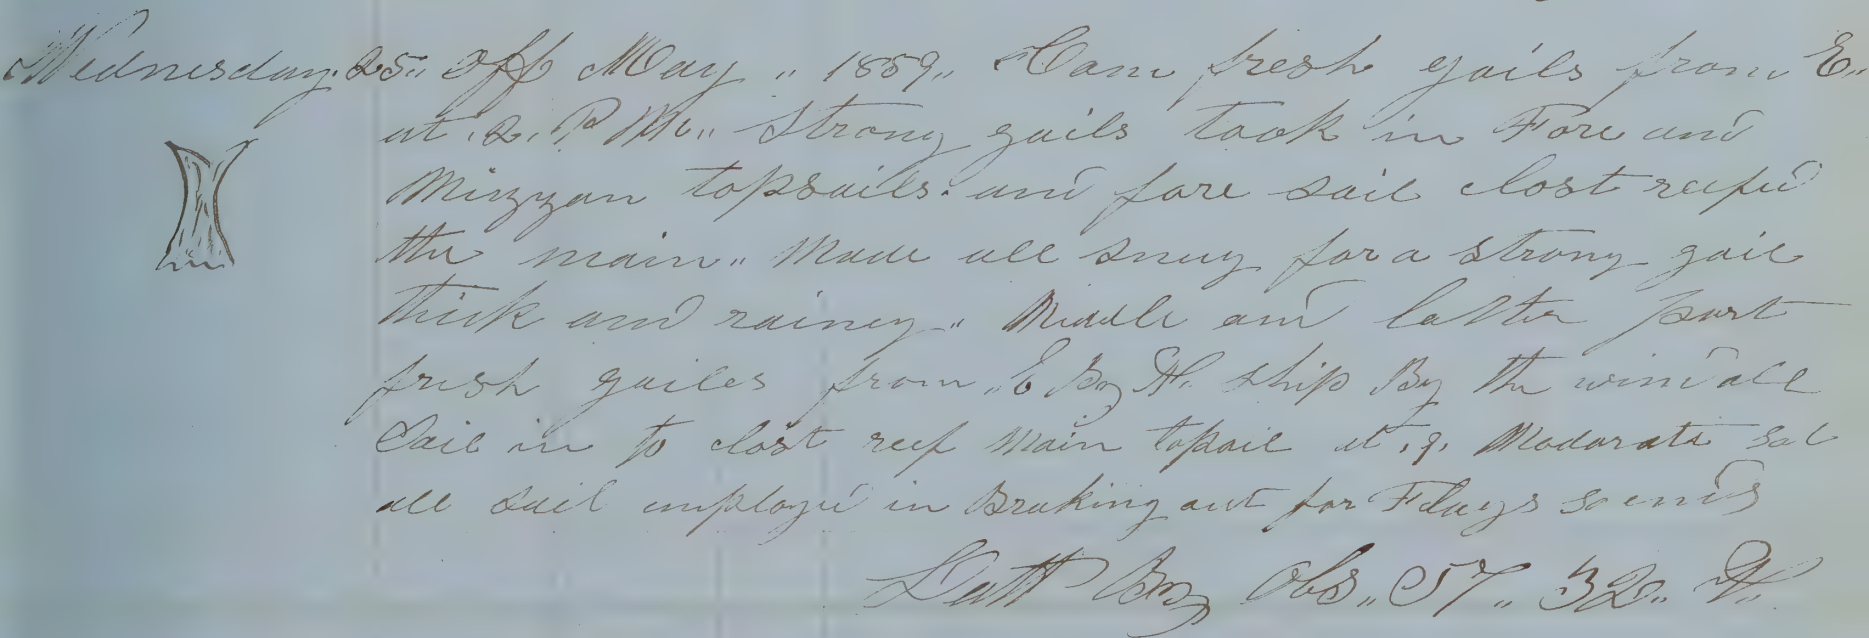 Wednesday. 25" off May " 1859" Cam fresh gails from E"
at .2. P M" Strong gails took in Fore and
Mizzan topsails. and fore sail clost reefd
the main" Made all snug for a strong gail
thick and rainey" Middle and latter part
fresh gailes from E By N. ship By the wind all
Sail in to clost reef Main topsail at .9. Modorate sat
all sail employd in Braking out for Flags so ends
Latt By Obs" 57" 32" N"